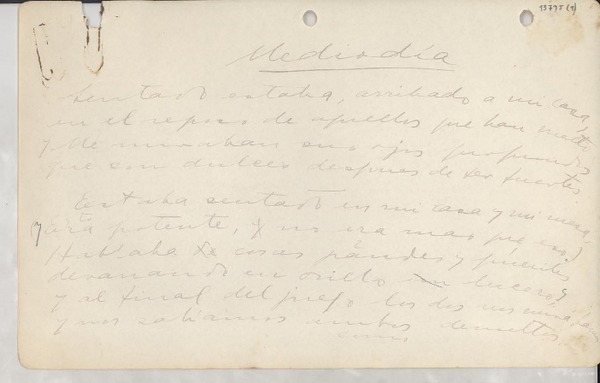 13775 (1)
Mediodía
Sentado estaba, arribado a mi casa,
en el reposo de aquellos que han
y me miraban sus ojos profundos
que son dulces después de ser fuertes.
Estaba sentado en mi casa y mi mesa,
y era potente, y no era mas que eso,
Hablaba de cosas grandes y
devanando en ovillo luceros,
y al final del juego los dos nos
y nos sabíamos ambos devueltos.